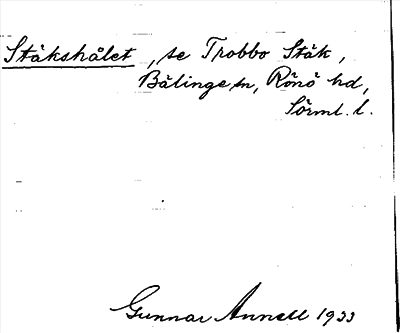 Stäkshålet, se Trobbo Stäk,
Bälinge sn, Rönö hd,
Sörml. l.
Gunnar Annell 1933